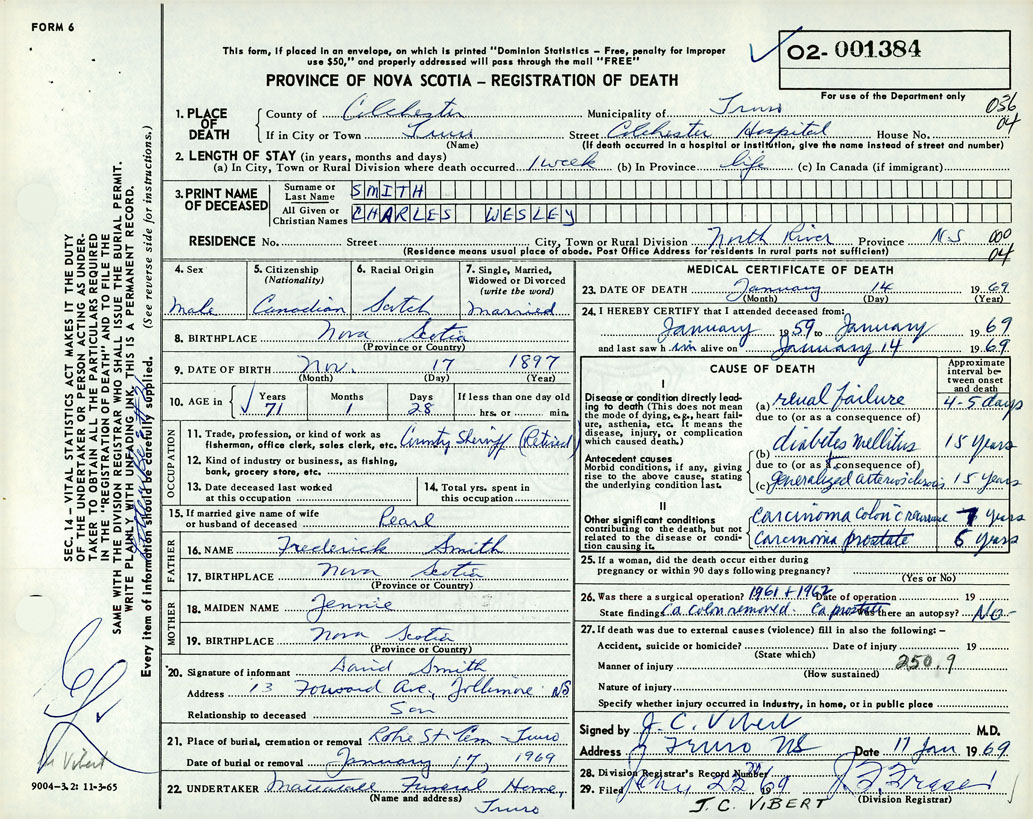 FORM 6
This form, if placed in an envelope, on which is printed "Dominion Statistics – Free, penalty for improper
use $50," and properly addressed will pass through the mail "FREE"
O2- 001384
For use of the Department only
PROVINCE OF NOVA SCOTIA – REGISTRATION OF DEATH
036
04
1. PLACE OF DEATH
County of Colchester Municipality of Truro
If in City or Town Truro Street Colchester Hospital House No.
(Name) (If death occurred in a hospital or institution, give the name instead of street and number)
2. LENGTH OF STAY (in years, months and days)
(a) In City, Town or Rural Division where death occurred 1 week (b) In Province life (c) In Canada (if immigrant)
3. PRINT NAME OF DECEASED
Surname or Last Name SMITH
All Given or Christian Names CHARLES WESLEY
RESIDENCE No. Street City, Town or Rural Division North River Province N S 000
04
(Residence means usual place of abode. Post Office Address for residents in rural parts not sufficient)
4. Sex Male
5. Citizenship (Nationality) Canadian
6. Racial Origin Scotch
7. Single, Married, Widowed or Divorced (write the word) Married
8. BIRTHPLACE Nova Scotia
(Province or Country)
9. DATE OF BIRTH Nov. 17 1897
(Month) (Day) (Year)
10. AGE in Years 71 Months 1 Days 28 If less than one day old hrs. or min.
OCCUPATION
11. Trade, profession, or kind of work as fisherman, office clerk, sales clerk, etc. County Sheriff (Retired)
12. Kind of industry or business, as fishing, bank, grocery store, etc.
13. Date deceased last worked at this occupation
14. Total yrs. spent in this occupation
15. If married give name of wife or husband of deceased Pearl
FATHER
16. NAME Frederick Smith
17. BIRTHPLACE Nova Scotia
(Province or Country)
MOTHER
18. MAIDEN NAME Jennie
19. BIRTHPLACE Nova Scotia
(Province or Country)
20. Signature of informant David Smith
Address 13 Ave., NS
Relationship to deceased Son
21. Place of burial, cremation or removal Robie St Cem – Truro
Date of burial or removal January 17, 1969
22. UNDERTAKER Funeral Home,
(Name and address) Truro
MEDICAL CERTIFICATE OF DEATH
23. DATE OF DEATH January 14 1969
(Month) (Day) (Year)
24. I HEREBY CERTIFY that I attended deceased from:
January 1959 to January 1969
and last saw him alive on January 14 1969
CAUSE OF DEATH
Approximate interval between onset and death
I
Disease or condition directly leading to death (This does not mean the mode of dying, e.g., heart failure, asthenia, etc. It means the disease, injury, or complication which caused death.)
(a) renal failure 4-5 days
due to (or as a consequence of)
Antecedent causes
Morbid conditions, if any, giving rise to the above cause, stating the underlying condition last.
(b) diabetes mellitus 15 years
due to (or as a consequence of)
(c) generalized arteriosclerosis 15 years
II
Other significant conditions contributing to the death, but not related to the disease or condition causing it.
carcinoma colon c recurrence 7 years
carcinoma prostate 6 years
25. If a woman, did the death occur either during pregnancy or within 90 days following pregnancy?
(Yes or No)
26. Was there a surgical operation? 1961 + 1962 Date of operation 19
State findings Ca colon removed. Ca prostate Was there an autopsy? No
27. If death was due to external causes (violence) fill in also the following: –
Accident, suicide or homicide? Date of injury 19
(State which)
Manner of injury 250.9
(How sustained)
Nature of injury
Specify whether injury occurred in Industry, in home, or in public place
Signed by J. C. Vibert M.D.
Address Truro NS Date 17 Jan 1969
28. Division Registrar's Record Number
29. Filed Jany 22 69
(Division Registrar)
J.C. VIBERT
SEC. 14 – VITAL STATISTICS ACT MAKES IT THE DUTY
OF THE UNDERTAKER OR PERSON ACTING AS UNDER-
TAKER TO OBTAIN ALL THE PARTICULARS REQUIRED
IN THE "REGISTRATION OF DEATH" AND TO FILE THE
SAME WITH THE DIVISION REGISTRAR WHO SHALL ISSUE THE BURIAL PERMIT.
WRITE PLAINLY WITH UNFADING INK. THIS IS A PERMANENT RECORD.
Every item of information should be carefully supplied. (See reverse side for instructions.)
Vibert
9004–3.2: 11-3-65